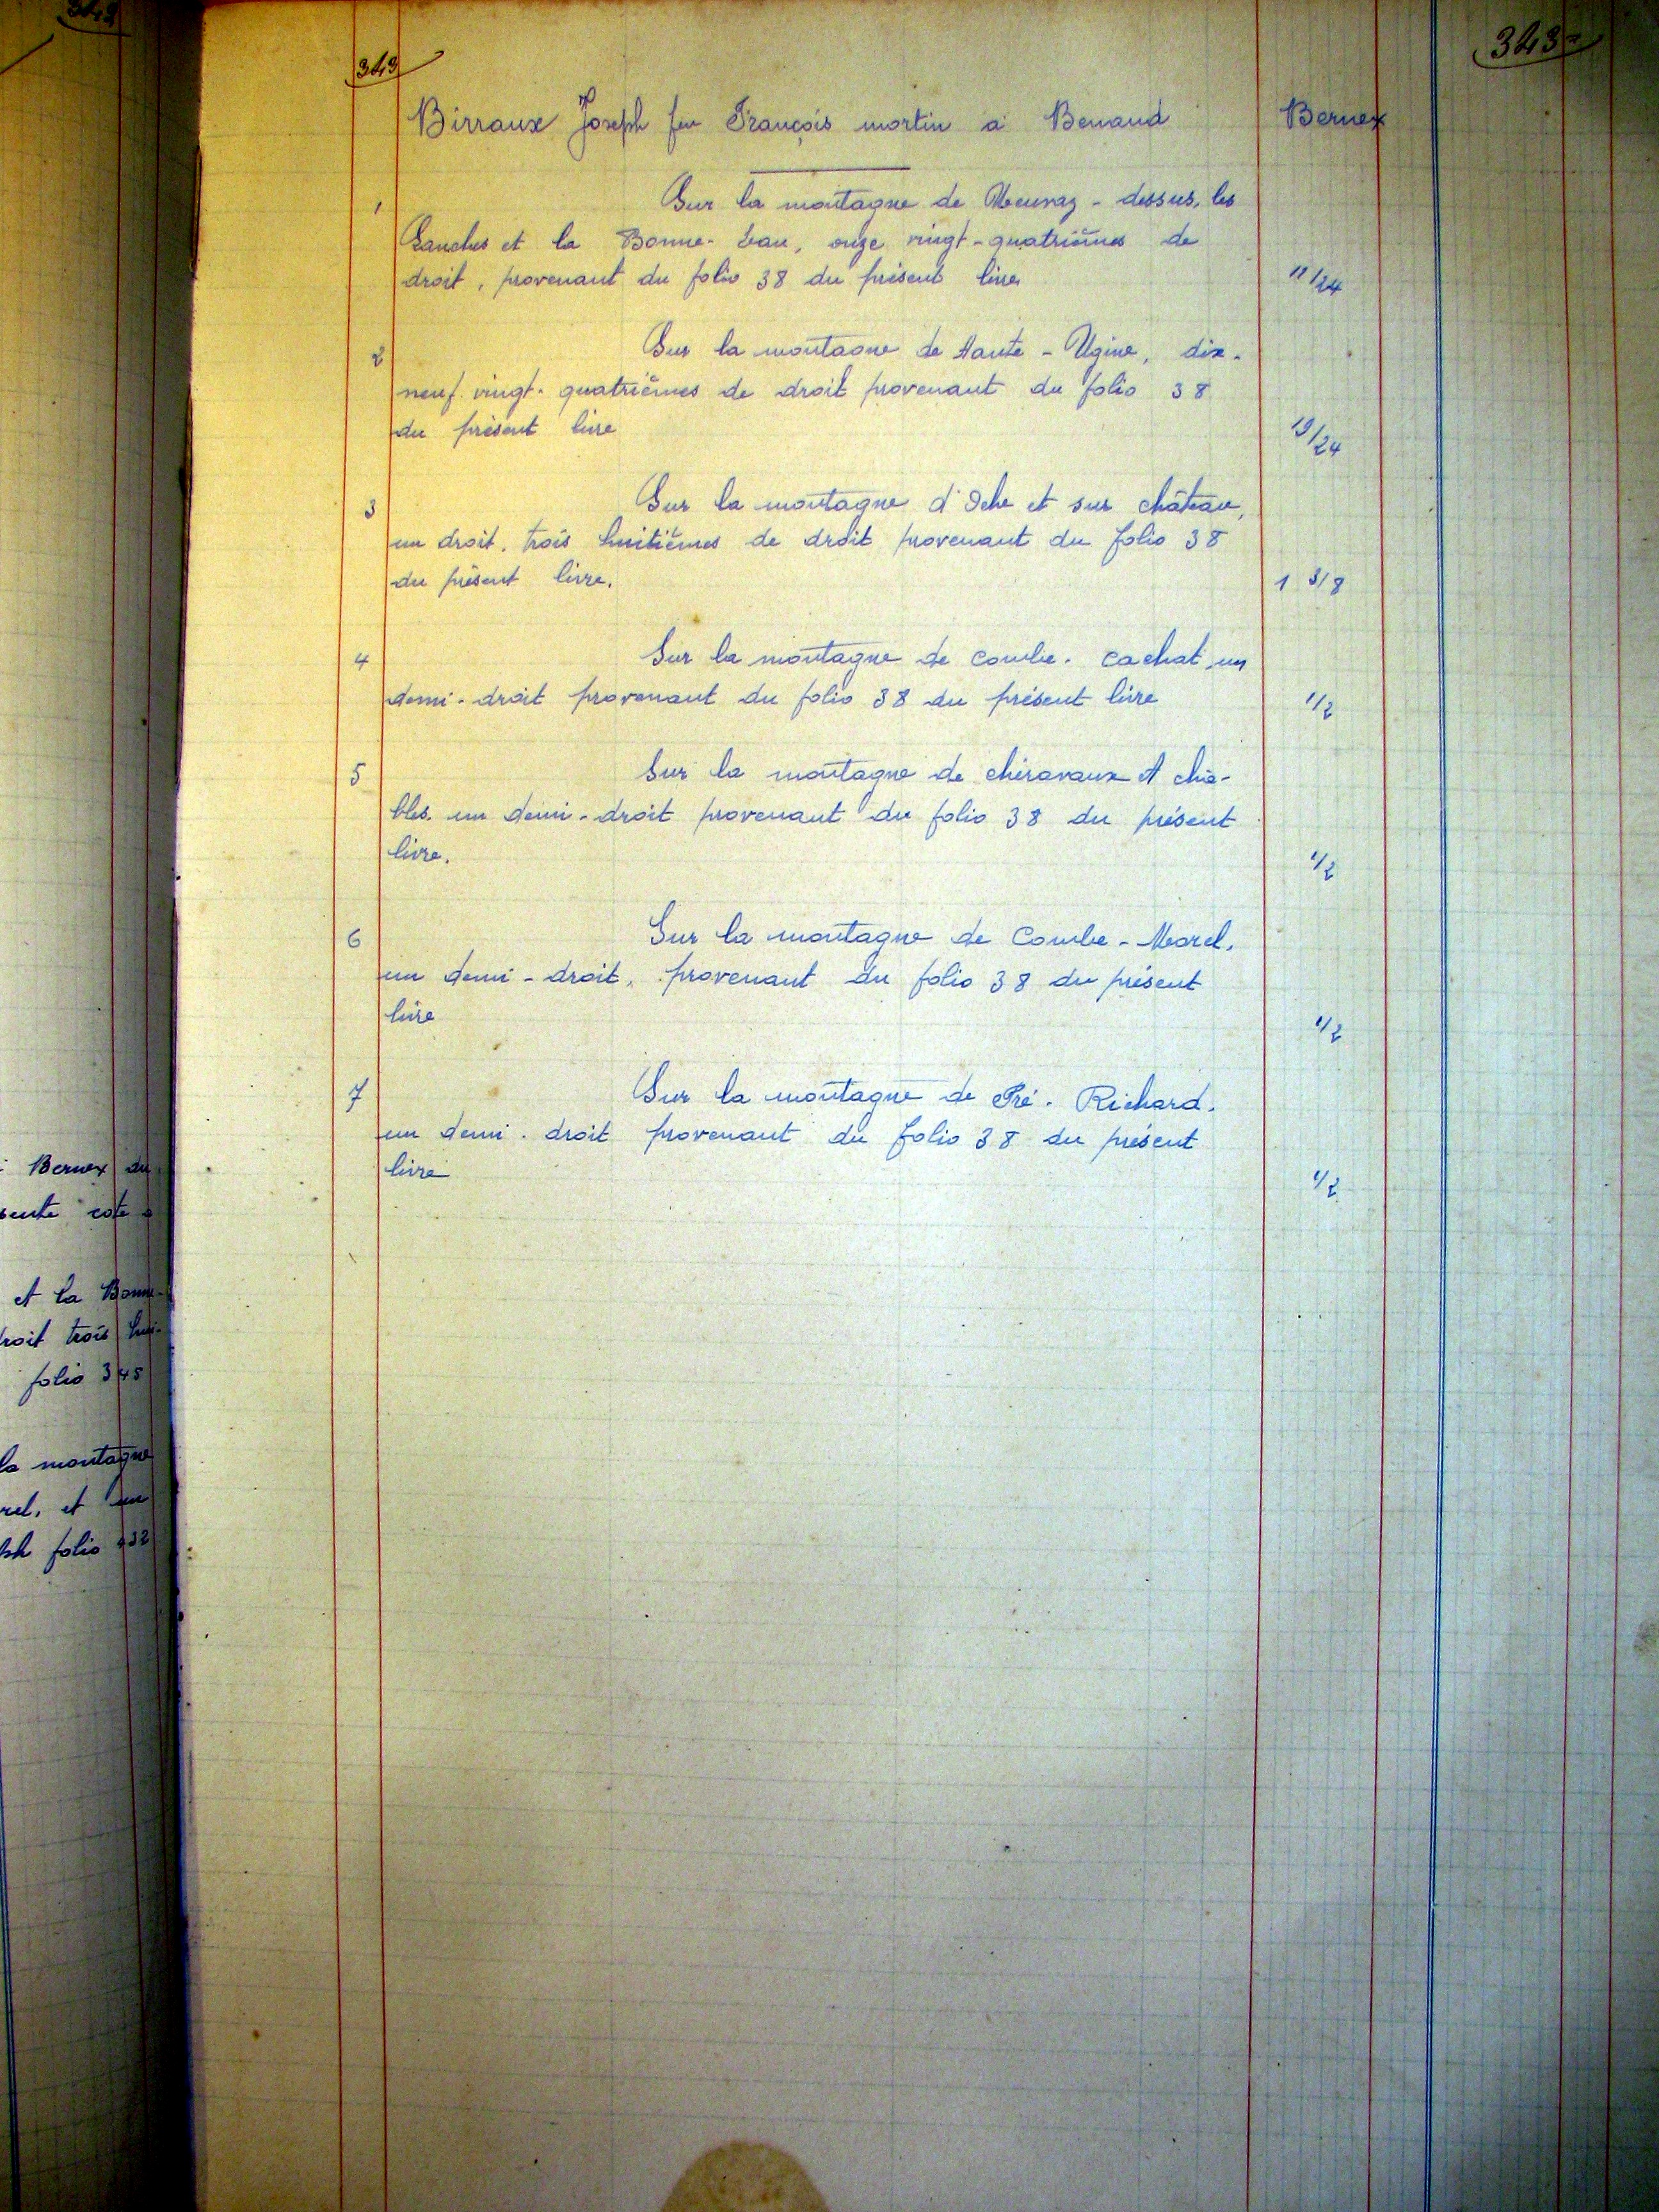 343
343
Birraux Joseph feu François mortin à Benand
Bernex
1
Sur la montagne de Meunaz - dessus, les
et la Bonne-Eau, onze vingt-quatrièmes de
droit, provenant du folio 38 du présent livre
11/24
2
Sur la montagne de Haute - Ugine, dix-
neuf vingt-quatrièmes de droit provenant du folio 38
du présent livre
19/24
3
Sur la montagne d'Oche et sur château,
un droit, trois huitièmes de droit provenant du folio 38
du présent livre.
1 3/8
4
Sur la montagne de Combe-Cachat un
demi-droit provenant du folio 38 du présent livre
1/2
5
Sur la montagne de chéravaux et châ-
bles. un demi-droit provenant du folio 38 du présent
livre.
1/2
6
Sur la montagne de Combe-Morel,
un demi-droit, provenant du folio 38 du présent
livre
1/2
7
Sur la montagne de Pré-Richard.
un demi-droit provenant du folio 38 du présent
livre
1/2
Bernex du
cote
et la Bonne-
roit trois hui-
folio 345
la montagne
rel, et un
folio